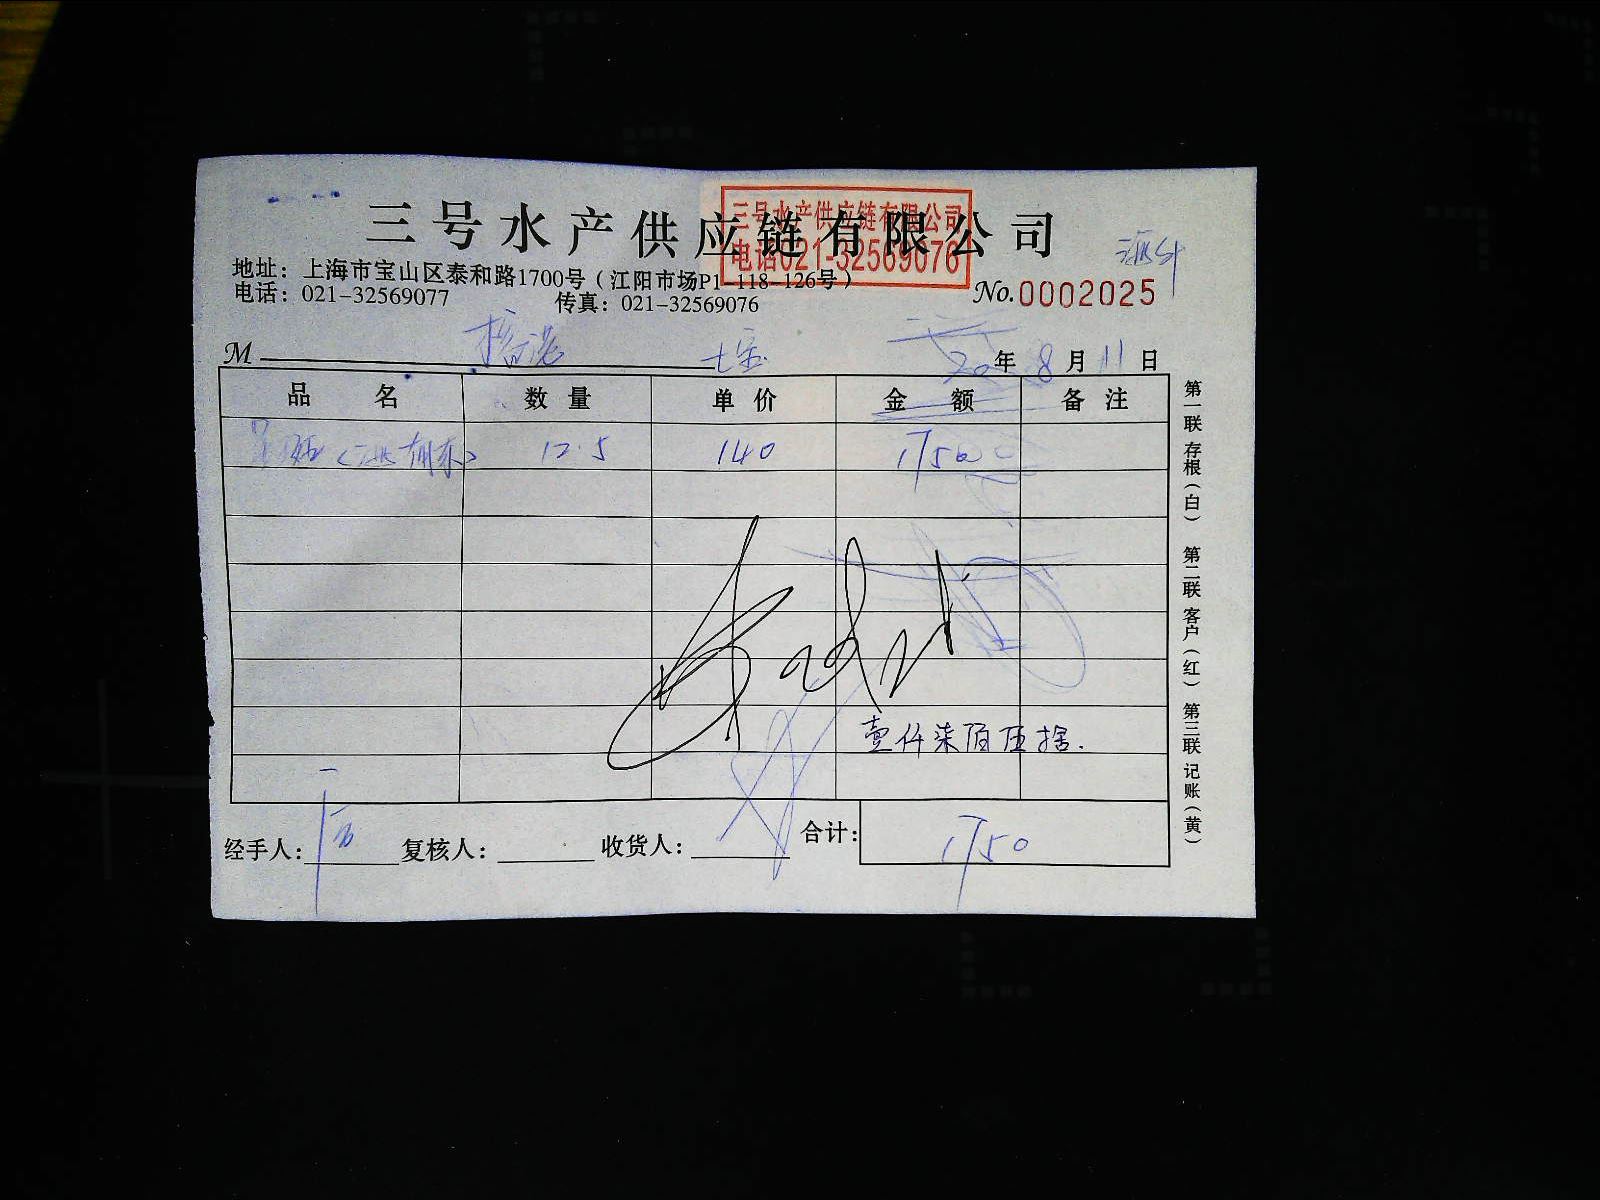 三号水产供应链有限公司
三号水产供应链有限公司
电话021-32569076
地址：上海市宝山区泰和路1700号（江阳市场P1-118-126号）
电话：021-32569077 传真：021-32569076
No.0002025
M 20年8月11日
品名 数量 单价 金额 备注
12.5 140 1750
壹仟柒佰伍拾.
经手人： 复核人： 收货人： 合计： 1750
第一联 存根（白） 第二联 客户（红） 第三联 记账（黄）